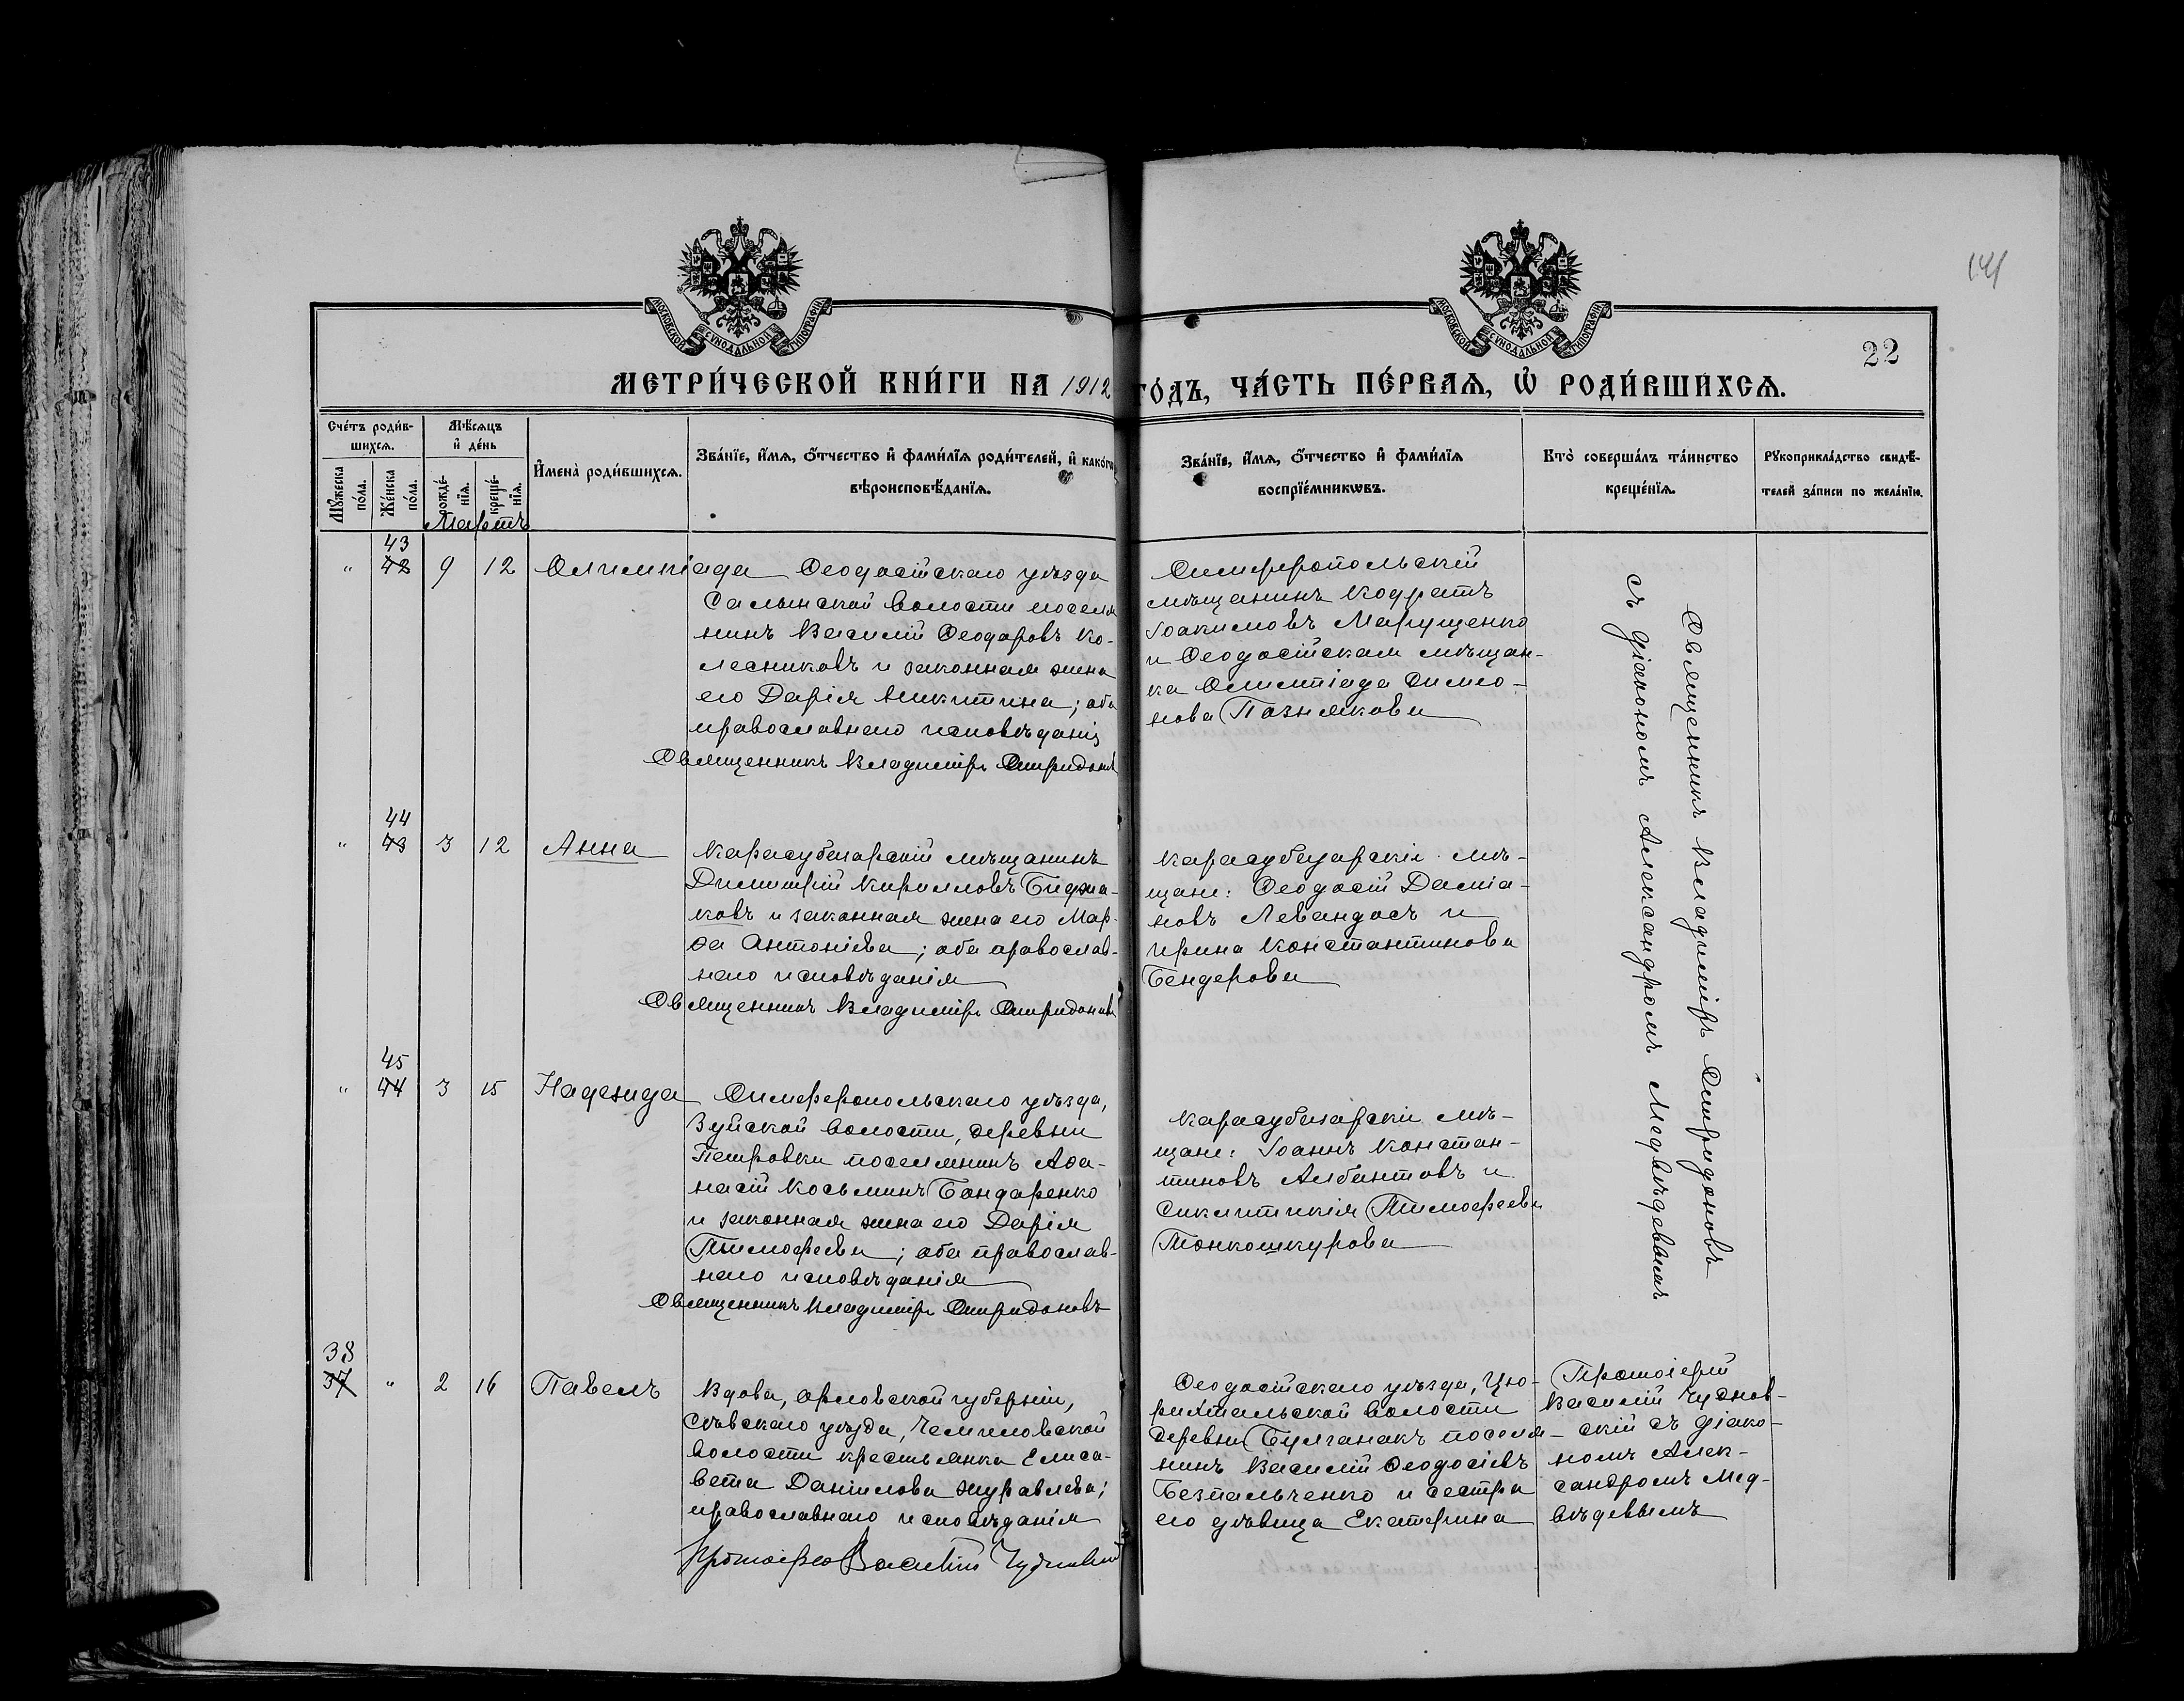 141
22
МОСКОВСКОЙ СѴНОДАЛЬНОЙ ТИПОГРАФІИ
МОСКОВСКОЙ СѴНОДАЛЬНОЙ ТИПОГРАФІИ
МЕТРИ́ЧЕСКОЙ КНИ́ГИ НА 1912 ГО́ДЪ, ЧА́СТЬ ПЕ́РВАѦ, Ѡ҆ РОДИ́ВШИХСѦ.
Сче́тъ роди́в-
шихсѧ.
Мꙋ́жеска
по́ла.
Же́нска
по́ла.
Мѣ́сѧцъ
и҆ де́нь
рожде́-
нїѧ.
креще́-
нїѧ.
И҆мена̀ роди́вшихсѧ.
Зва́нїе, и҆́мѧ, ѻ҆́тчество и҆ фами́лїѧ роди́телей, и҆ како́гѡ
вѣроисповѣ́данїѧ.
Зва́нїе, и҆́мѧ, ѻ҆́тчество и҆ фами́лїѧ
воспрїе́мникѡвъ.
Кто̀ соверша́лъ та́инство
креще́нїѧ.
Рꙋкоприкла́дство свидѣ́-
телей за́писи по жела́нїю.
Мартъ
43
" 42 9 12 Олимпіада
Ѳеодосійскаго уѣзда
Салынской волости поселя
нинъ Василій Ѳеодоровъ Ко-
лесниковъ и законная жена
его Дарія Никитина; оба
православнаго исповѣданія
Священникъ Владиміръ Спиридоновъ
Симферопольскій
мѣщанинъ Кодратъ
Іоакимовъ Марущенко
и Ѳеодосійская мѣщан-
ка Олимпіада Симео-
нова Познякова
Священникъ Владиміръ Спиридоновъ
съ діакономъ Александромъ Медвѣдевымъ
44
" 43 3 12 Анна
Карасубазарскій мѣщанинъ
Димитрій Кирилловъ Биджа-
ковъ и законная жена его Мар-
ѳа Антоніева; оба православ-
наго исповѣданія
Священникъ Владиміръ Спиридоновъ
Карасубазарскіе мѣ-
щане: Ѳеодосій Даміа-
новъ Левандосъ и
Ирина Константинова
Бендерова
45
" 44 3 15 Надежда
Симферопольскаго уѣзда,
Зуйской волости, деревни
Петровки поселянинъ Аѳа-
насій Косьминъ Бондаренко
и законная жена его Дарія
Тимоѳеева; оба православ-
наго исповѣданія
Священникъ Владиміръ Спиридоновъ
Карасубазарскіе мѣ-
щане: Іоаннъ Констан-
тиновъ Албантовъ и
Синклитикія Тимофеева
Тонкошкурова
38
37 " 2 16 Павелъ
Вдова, Орловской губерніи,
Сѣвскаго уѣзда,
волости крестьянка Елиса-
вета Даніилова Журавлева;
православнаго исповѣданія
Протоіерей Василій Чудновскій
Ѳеодосійскаго уѣзда, Цю-
рихтальской волости
деревни Булганакъ поселя-
нинъ Василій Ѳеодосіевъ
Безпальченко и сестра
его дѣвица Екатерина
Протоіерей
Василій Чуднов-
скій съ діако-
номъ Алек-
сандромъ Мед-
вѣдевымъ